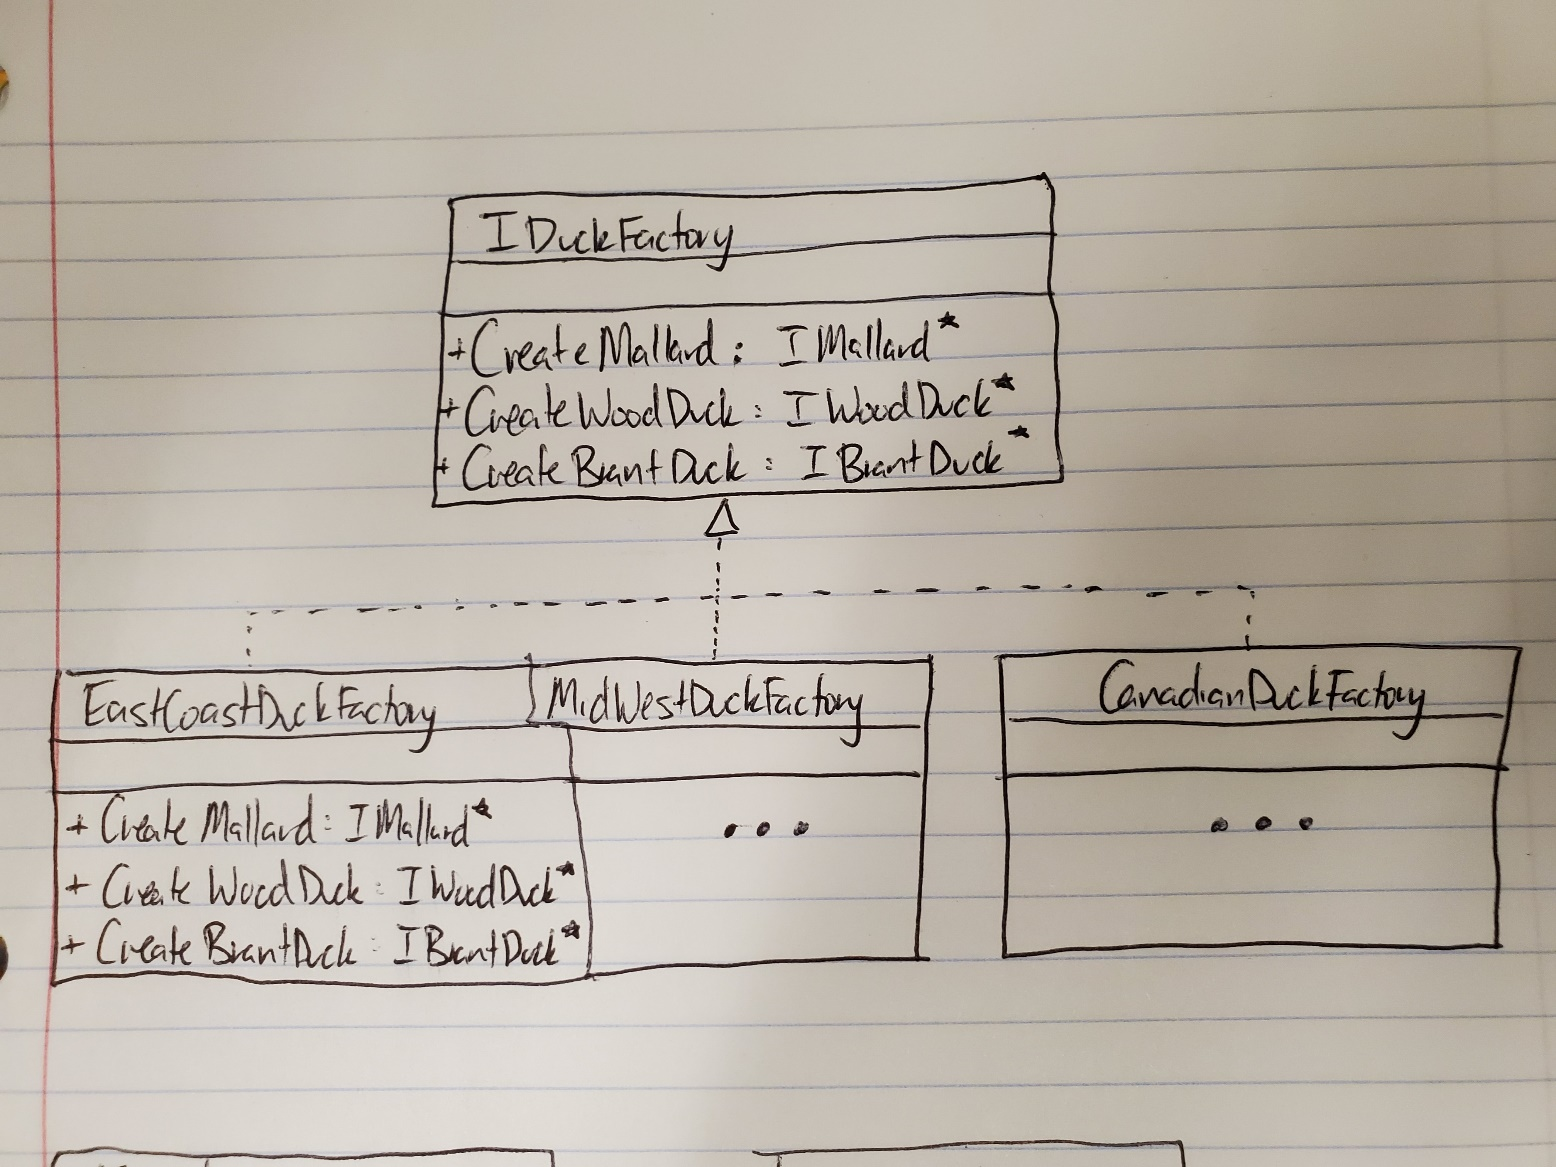 IDuckFactory
+ CreateMallard : IMallard*
+ CreateWoodDuck : IWoodDuck*
+ CreateBrantDuck : IBrantDuck*
EastCoastDuckFactory
+ CreateMallard : IMallard*
+ CreateWoodDuck : IWoodDuck*
+ CreateBrantDuck : IBrantDuck*
MidWestDuckFactory
...
CanadianDuckFactory
...